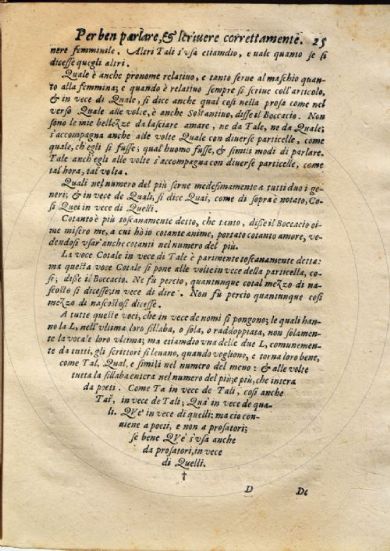 Per ben parlare, & scriuere correttamente. 25
nere femminile. Altri Tali s'vsa etiamdio, e uale quanto se si
dicesse quegli altri.
Quale è anche pronome relatiuo, e tanto serue al maschio quan-
to alla femmina; e quando è relatiuo sempre si scriue coll'articolo,
& in vece di Quale, si dice anche qual così nella prosa come nel
verso Quale alle volte, è anche Soſtantiuo, disse il Boccacio. Non
sono le mie bellezze da lasciare amare, ne da Tale, ne da Quale;
s'accompagna anche alle volte Quale con diuerse particelle, come
quale, ch'egli si fusse; qual huomo fusse, & simili modi di parlare.
Tale anch'egli alle volte s'accompagna con diuerse particelle, come
tal hora, tal volta.
Quali nel numero del più serue medesimamente a tutti duo i ge-
neri; & in vece de Quali, si dice Quai, come di sopra è notato, Co
si Quei in vece di Quelli.
Cotanto è più toscanamente detto, che tanto, disse il Boccacio oi-
me misero me, a cui hò io cotante anime, portato cotanto amore, ve-
dendosi vsar anche cotanti nel numero del più.
La voce Cotale in vece di Tale è parimente toscanamente detta:
ma questa voce Cotale si pone alle volte in vece della particella, co-
sì; disse il Boccacio. Ne fu percio, quantunque cotal mezzo di na-
scosto si dicesse, in vece di dire. Non fu percio quantunque così
mezzo di nascosto si dicesse.
A tutte queste voci, che in vece de nomi si pongono; le quali han-
no la L, nell'vltima loro sillaba, o sola, o raddoppiata, non solamen-
te la vocale loro vltima; ma etiamdio vna delle due L, communemen-
te da tutti, gli scrittori si leuano, quando vogliono, e torna loro bene,
come Tal, Qual, e simili nel numero del meno: & alle volte
tutta la sillaba entera nel numero del più; e più, che intera
da poeti. Come Ta in vece de Tali, così anche
Tai, in vece de Tali; Qua in vece de qua-
li. QVe' in vece di quelli; ma cio con-
uiene a poeti, e non a prosatori;
se bene QVe' s'vsa anche
da prosatori, in vece
di Quelli.
†
D De